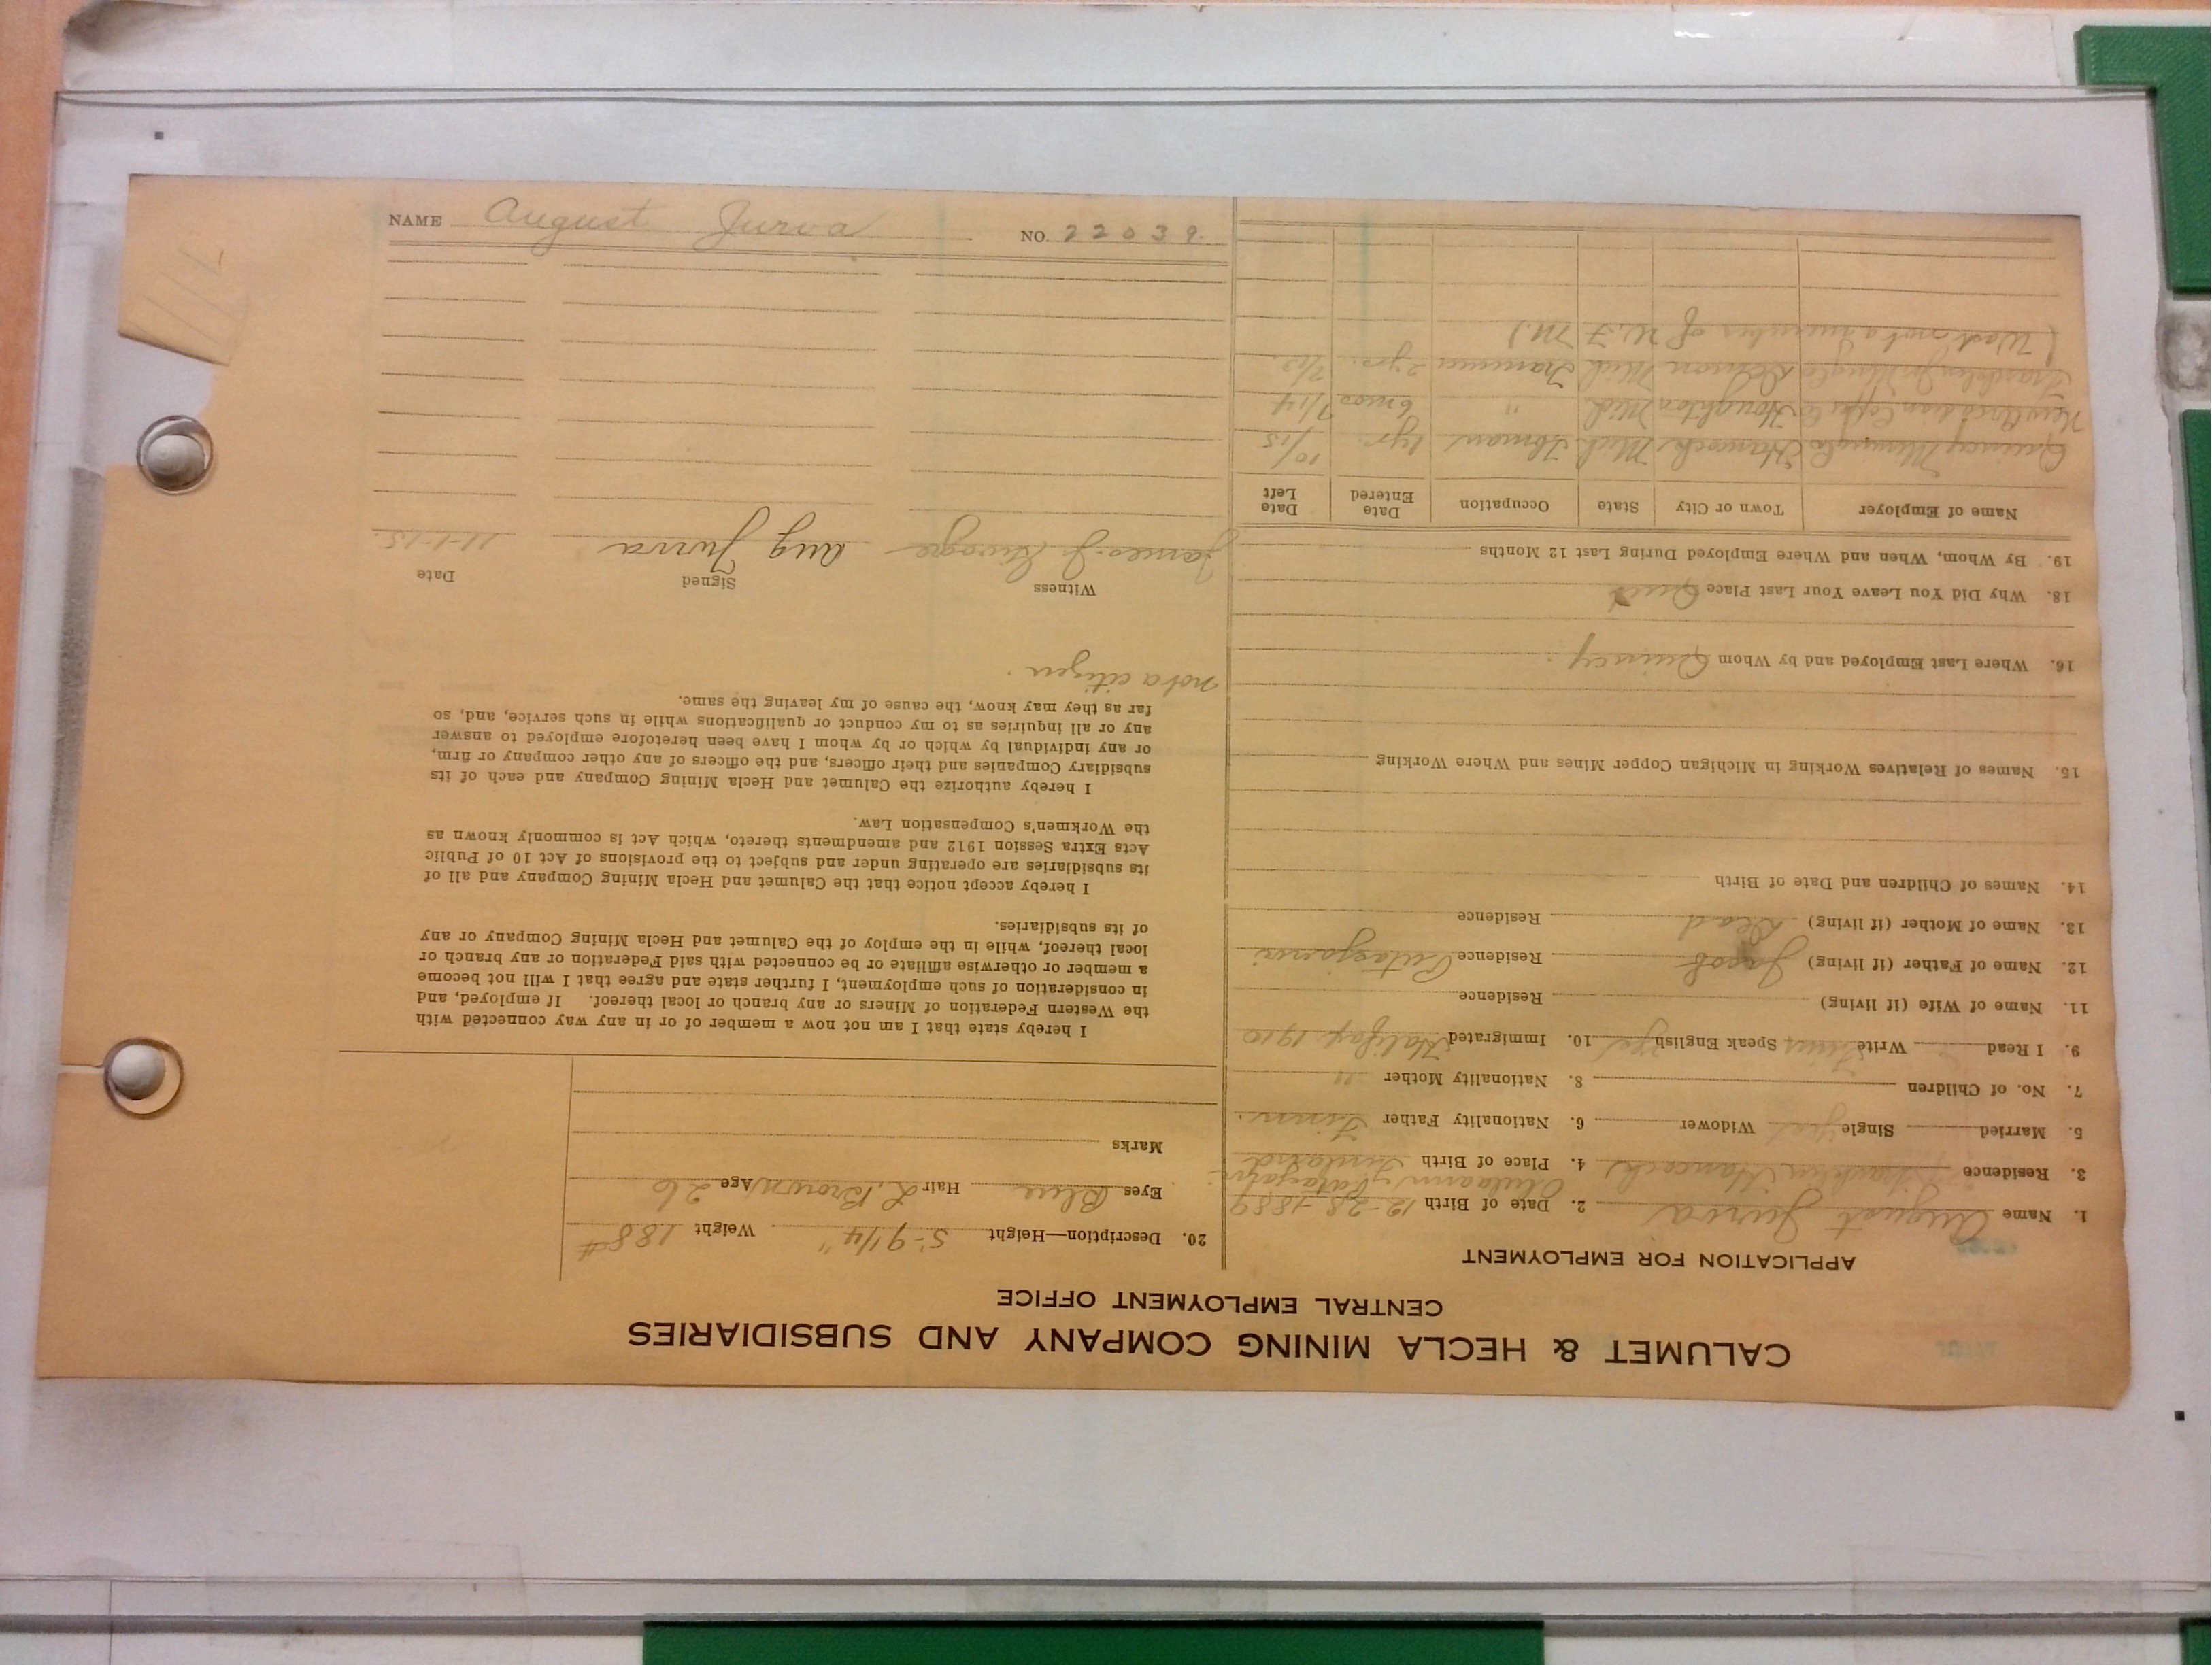 CALUMET & HECLA MINING COMPANY AND SUBSIDIARIES
CENTRAL EMPLOYMENT OFFICE
APPLICATION FOR EMPLOYMENT
1. Name August Jurva 2. Date of Birth 12-28-1889
3. Residence Franklin Hancock 4. Place of Birth Finland
5. Married Single yes Widower 6. Nationality Father Finn.
7. No. of Children 8. Nationality Mother "
9. I Read Write Finns Speak English yes 10. Immigrated Halifax 1910
11. Name of Wife (if living) Residence
12. Name of Father (if living) Jacob Residence
13. Name of Mother (if living) Dead Residence
14. Names of Children and Date of Birth
15. Names of Relatives Working in Michigan Copper Mines and Where Working
16. Where Last Employed and by Whom Quincy.
18. Why Did You Leave Your Last Place Quit
19. By Whom, When and Where Employed During Last 12 Months
Name of Employer Town or City State Occupation Date Entered Date Left
Quincy Mining Co Hancock Mich 1yr 10/15
Co Houghton Mich " 6 mos 7/14
Franklin Jr Mining Co Mich Trammer 2 yrs. 7/13
(Was not a member of W. F. M.)
20. Description—Height 5-9 1/4" Weight 188#
Eyes Blue Hair L. Brown Age 26
Marks
I hereby state that I am not now a member of or in any way connected with
the Western Federation of Miners or any branch or local thereof. If employed, and
in consideration of such employment, I further state and agree that I will not become
a member or otherwise affiliate or be connected with said Federation or any branch or
local thereof, while in the employ of the Calumet and Hecla Mining Company or any
of its subsidiaries.
I hereby accept notice that the Calumet and Hecla Mining Company and all of
its subsidiaries are operating under and subject to the provisions of Act 10 of Public
Acts Extra Session 1912 and amendments thereto, which Act is commonly known as
the Workmen's Compensation Law.
I hereby authorize the Calumet and Hecla Mining Company and each of its
subsidiary Companies and their officers, and the officers of any other company or firm,
or any individual by which or by whom I have been heretofore employed to answer
any or all inquiries as to my conduct or qualifications while in such service, and, so
far as they may know, the cause of my leaving the same.
not a citizen.
Witness Signed Date
James Jr Aug Jurva 11-1-15.
NAME August Jurva NO. 22039.